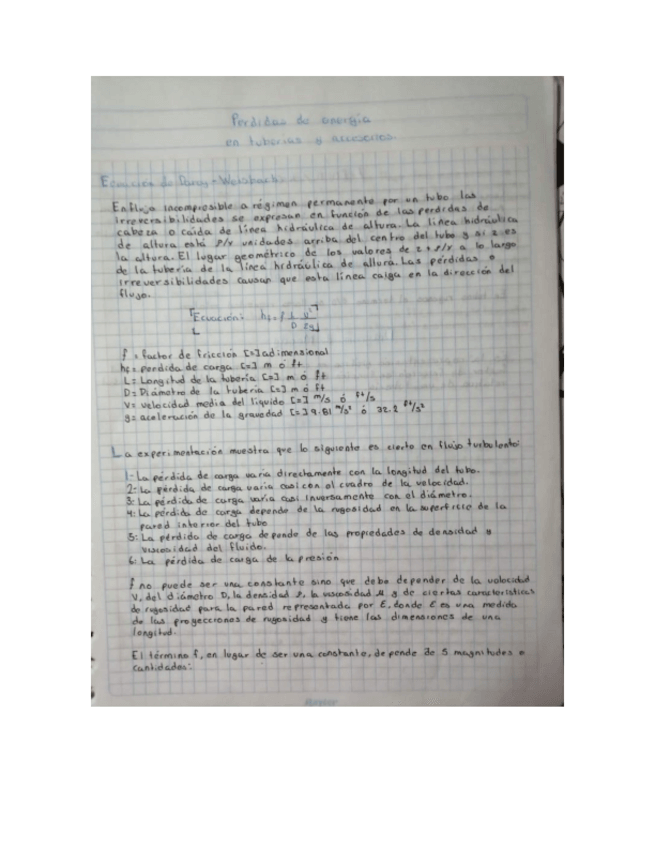 Perdidas de energia
en tuberias y accesorios.
Ecuación de Darcy-Weisbach
En flujo incompresible a régimen permanente por un tubo las
irreversibilidades se expresan en función de las perdidas de
cabeza o caída de línea hidráulica de altura. La línea hidráulica
de altura está P/γ unidades arriba del centro del tubo y si z es
la altura. El lugar geométrico de los valores de z + P/γ a lo largo
de la tubería de la línea hidráulica de altura. Las pérdidas o
irreversibilidades causan que esta línea caiga en la dirección del
flujo.
Ecuación: hf = f L/D V²/2g
f = factor de fricción [=] adimensional
hf = perdida de carga [=] m ó ft
L = Longitud de la tubería [=] m ó ft
D = Diámetro de la tubería [=] m ó ft
V = velocidad media del líquido [=] m/s ó ft/s
g = aceleración de la gravedad [=] 9.81 m/s² ó 32.2 ft/s²
La experimentación muestra que lo siguiente es cierto en flujo turbulento:
1: La pérdida de carga varía directamente con la longitud del tubo.
2: La pérdida de carga varía casi con el cuadro de la velocidad.
3: La pérdida de carga varía casi inversamente con el diámetro.
4: La pérdida de carga depende de la rugosidad en la superficie de la
pared interior del tubo
5: La pérdida de carga depende de las propiedades de densidad y
viscosidad del fluido.
6: La pérdida de carga de la presión
f no puede ser una constante sino que debe depender de la velocidad
V, del diámetro D, la densidad ρ, la viscosidad μ y de ciertas características
de rugosidad para la pared representada por E, donde E es una medida
de las proyecciones de rugosidad y tiene las dimensiones de una
longitud.
El término f, en lugar de ser una constante, depende de 5 magnitudes o
cantidades: